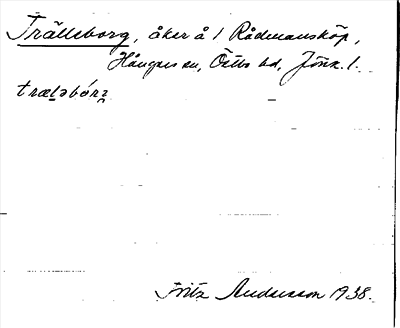 Trälleborg, åker å 1 Rådmansköp,
Hångers sn, Östbo hd, Jönk. l.
træləbórʒ
Fritz Andersson 1938.